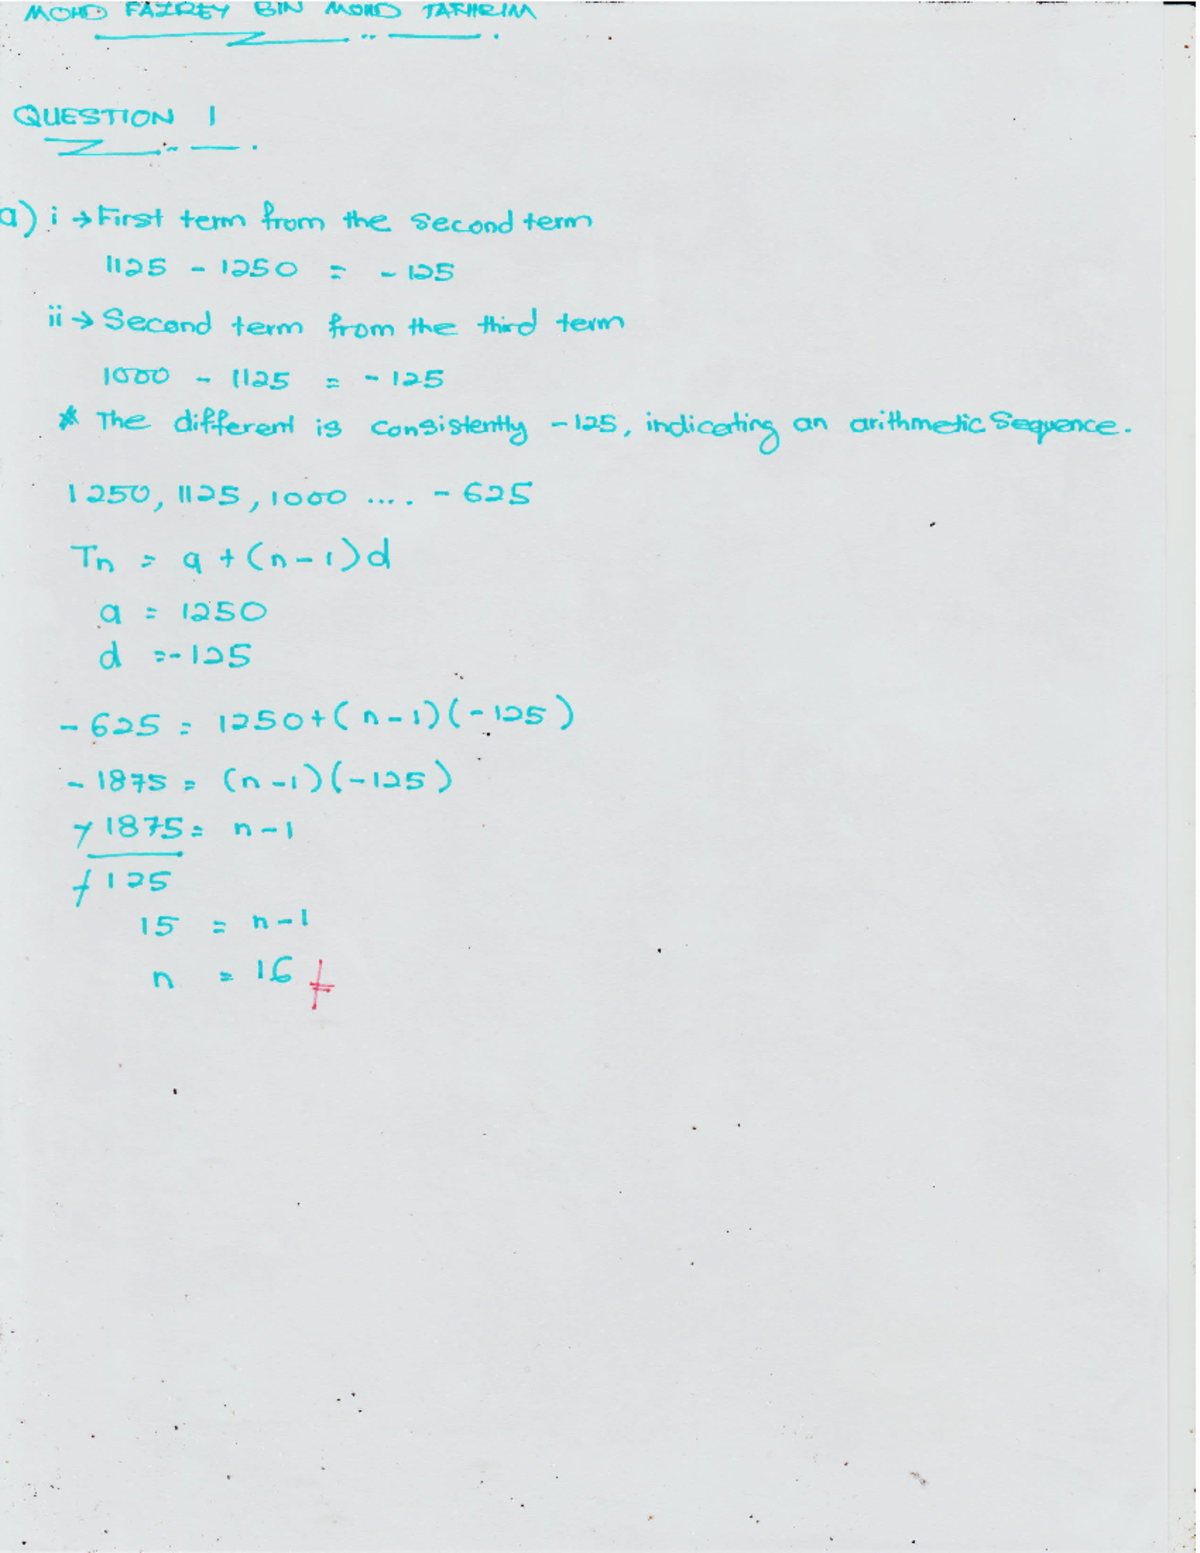 MOHD FAIREY BIN MOHD TARHEIM
QUESTION 1
a) i → First term from the second term
1125 - 1250 = - 125
ii → Second term from the third term
1000 - 1125 = - 125
* The different is consistently -125, indicating an arithmetic Sequence.
1250, 1125, 1000 .... - 625
Tn = a + (n-1)d
a = 1250
d =-125
- 625 = 1250+(n-1)(-125)
- 1875 = (n-1)(-125)
-1875 = n-1
-125
15 = n-1
n = 16